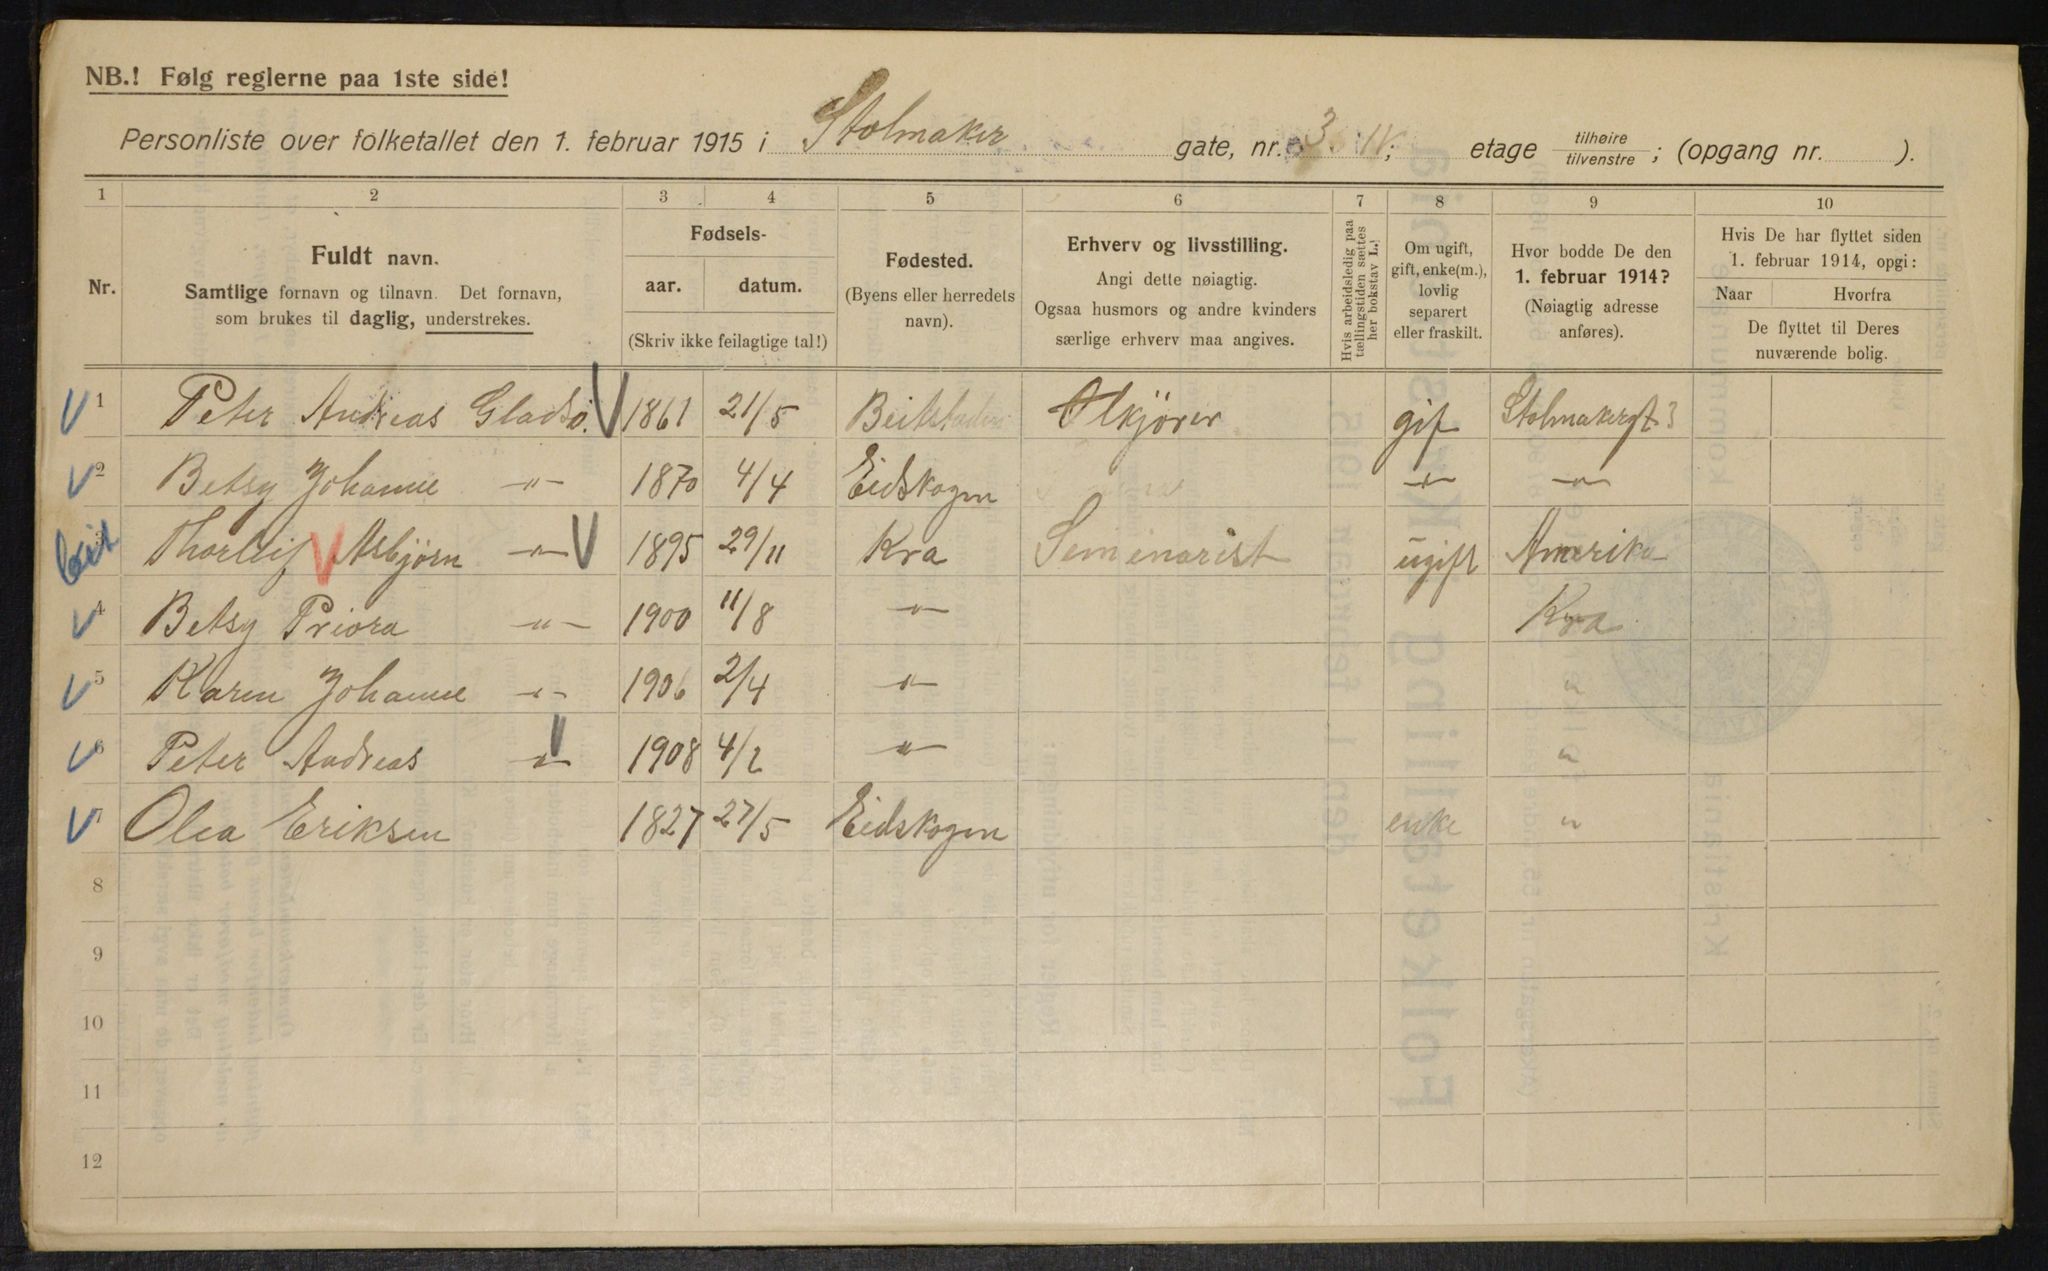 NB.! Følg reglerne paa 1ste side!
Personliste over folketallet den 1. februar 1915 i Stolmaker gate, nr. 3 IV; etage tilhøire / tilvenstre ; (opgang nr. ).
1 2 3 4 5 6 7 8 9 10
Nr.
Fuldt navn.
Samtlige fornavn og tilnavn. Det fornavn,
som brukes til daglig, understrekes.
Fødsels-
aar. datum.
(Skriv ikke feilagtige tal!)
Fødested.
(Byens eller herredets
navn).
Erhverv og livsstilling.
Angi dette nøiagtig.
Ogsaa husmors og andre kvinders
særlige erhverv maa angives.
Hvis arbeidsledig paa
tællingstiden sættes
her bokstav L.!
Om ugift,
gift, enke(m.),
lovlig
separert
eller fraskilt.
Hvor bodde De den
1. februar 1914?
(Nøiagtig adresse
anføres).
Hvis De har flyttet siden
1. februar 1914, opgi:
Naar Hvorfra
De flyttet til Deres
nuværende bolig.
V 1 Peter Andreas Gladsø. V 1861 21/5 Beitstaden Ølkjører gif Stolmakergt 3
V 2 Betsy Johanne -"- 1870 4/4 Eidskogen -"- -"-
3 Thorleif V Asbjørn -"- V 1895 29/11 Kra Seminarist ugift Amerika
V 4 Betsy Priora -"- 1900 11/8 -"- Kra
V 5 Karen Johanne -"- 1906 2/4 -"- "
V 6 Peter Andreas -"- V 1908 4/2 -"- "
V 7 Olea Eriksen 1827 27/5 Eidskogen enke "
8
9
10
11
12